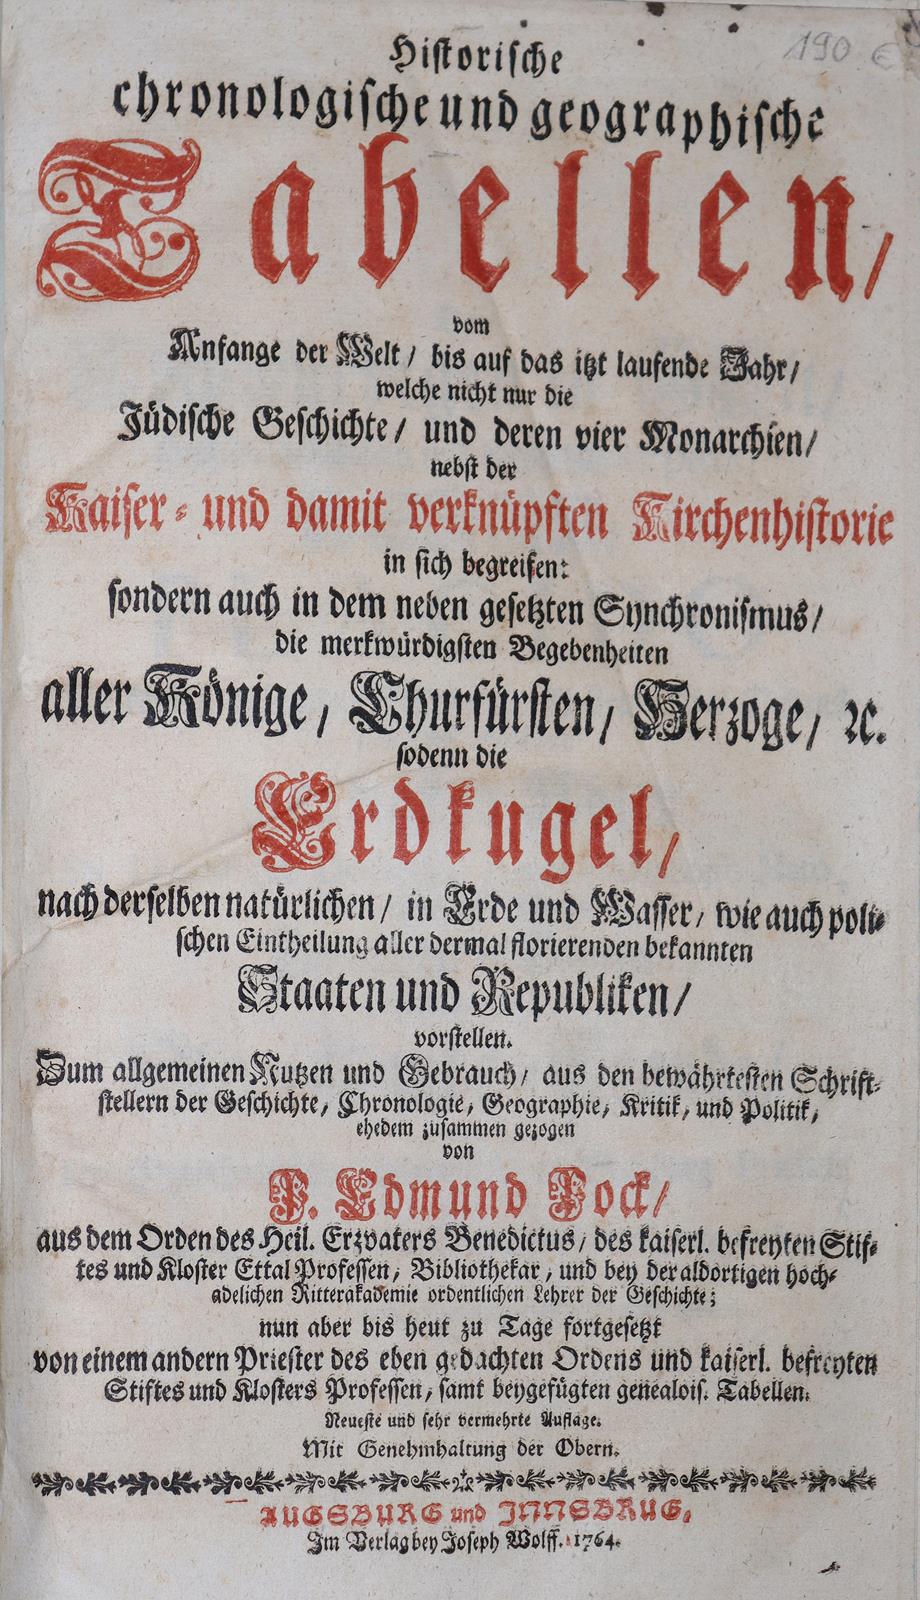 190 €
Historische
chronologische und geographische
Tabellen/
vom
Anfange der Welt/ bis auf das itzt laufende Jahr/
welche nicht nur die
Jüdische Geschichte/ und deren vier Monarchien/
nebst der
Kaiser- und damit verknüpften Kirchenhistorie
in sich begreifen:
sondern auch in dem neben gesetzten Synchronismus/
die merkwürdigsten Begebenheiten
aller Könige/ Churfürsten/ Herzoge/ ꝛc.
sodenn die
Erdkugel/
nach derselben natürlichen/ in Erde und Wasser/ wie auch politi-
schen Eintheilung aller dermal florierenden bekannten
Staaten und Republiken/
vorstellen.
Zum allgemeinen Nutzen und Gebrauch/ aus den bewährtesten Schrift-
stellern der Geschichte/ Chronologie/ Geographie/ Kritik/ und Politik/
ehedem zusammen gezogen
von
P. Edmund Pock/
aus dem Orden des Heil. Erzvaters Benedictus/ des kaiserl. befreyten Stif-
tes und Kloster Ettal Professen/ Bibliothekar/ und bey der aldortigen hoch-
adelichen Ritterakademie ordentlichen Lehrer der Geschichte;
nun aber bis heut zu Tage fortgesetzt
von einem andern Priester des eben gedachten Ordens und kaiserl. befreyten
Stiftes und Klosters Professen/ samt beygefügten genealois. Tabellen.
Neueste und sehr vermehrte Auflage.
Mit Genehmhaltung der Obern.
AUGSBURG und INNSBRUG,
Im Verlag bey Joseph Wolff. 1764.